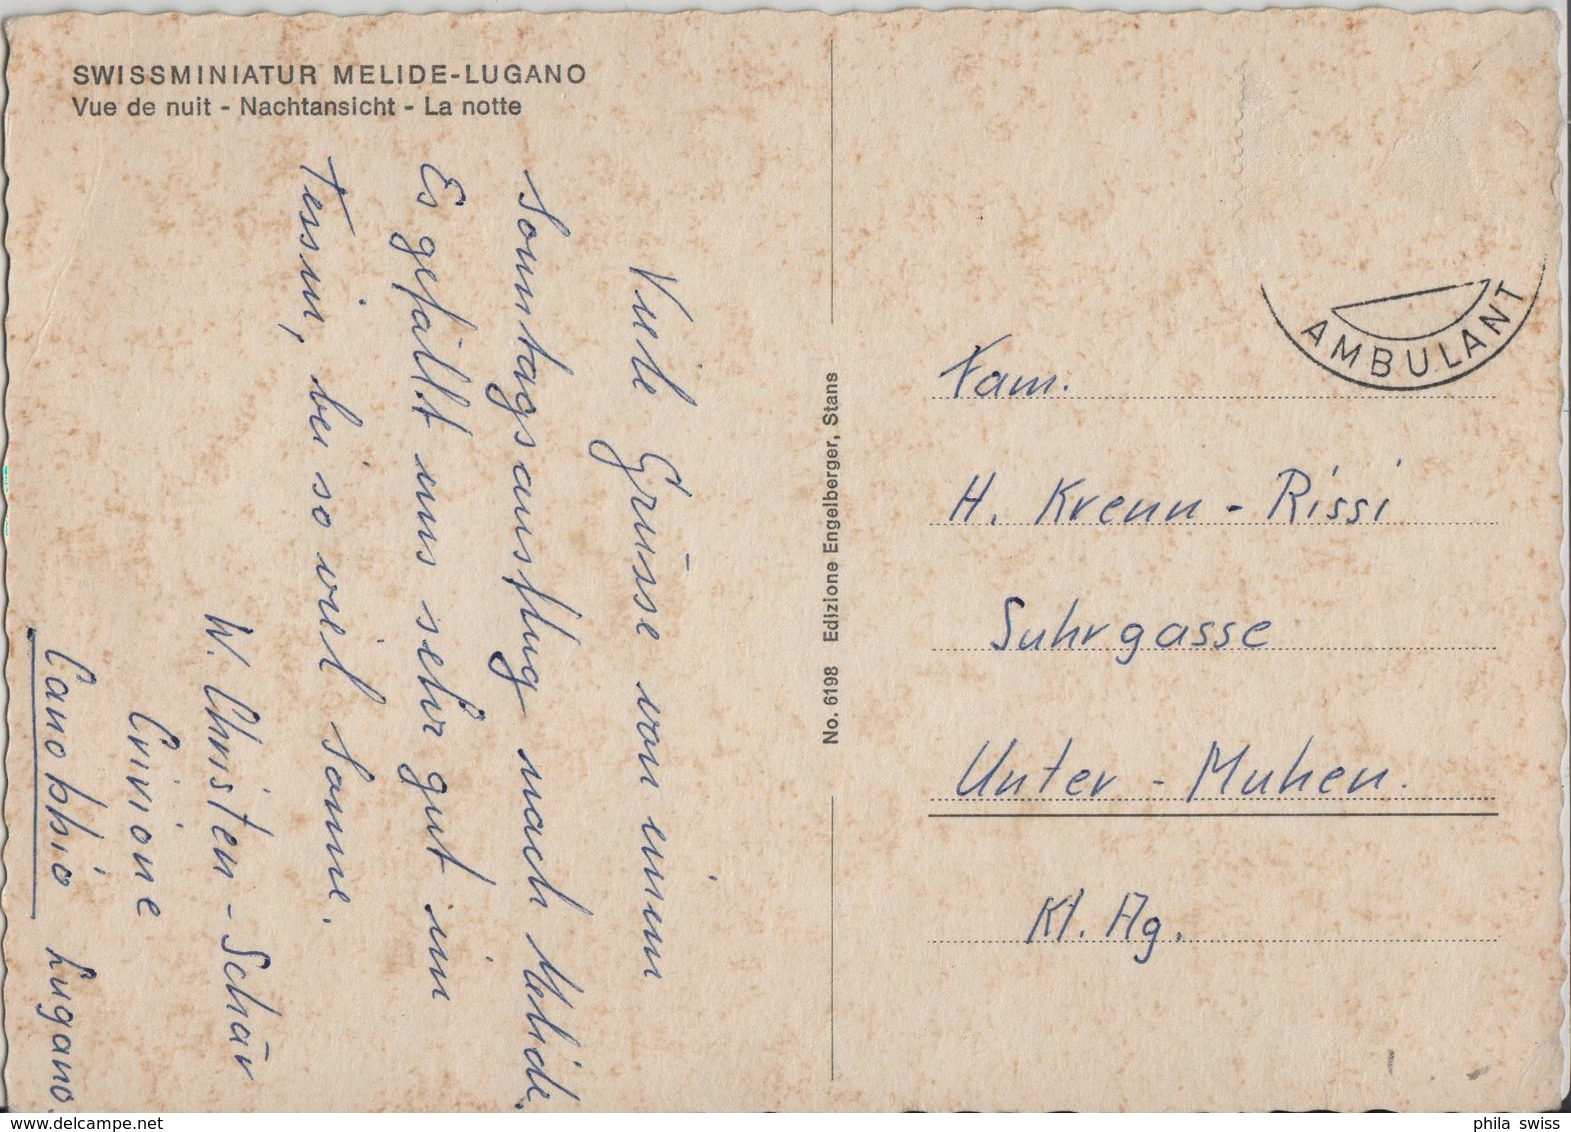 SWISSMINIATUR MELIDE-LUGANO
Vue de nuit - Nachtansicht - La notte
Viele Grüsse von einem
Sonntagsausflug nach Melide.
Es gefällt uns sehr gut im
Tessin, bei so viel Sonne.
W. Christen-Schär
Crivione
Canobbio Lugano.
No. 6198 Edizione Engelberger, Stans
AMBULANT
Fam.
H. Krenn-Rissi
Suhrgasse
Unter-Muhen.
Kt. Ag.
www.delcampe.net
phila_swiss